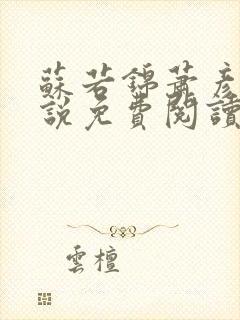 蘇若錦蕭彥
說免費閱讀
雲檀